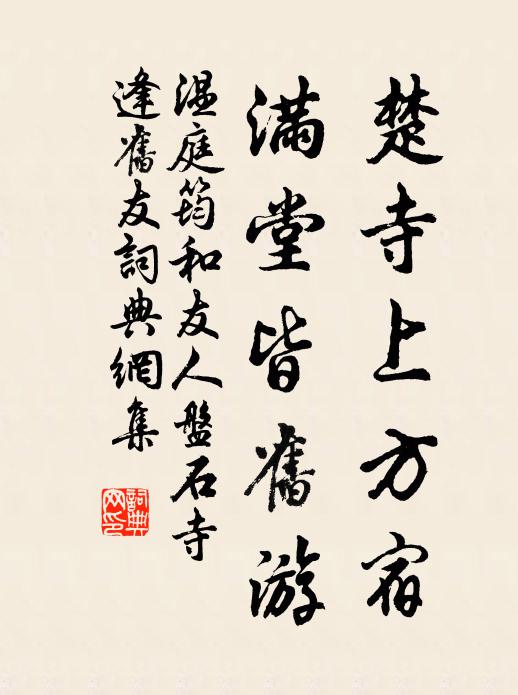 楚寺上方宿
滿堂皆舊游
溫庭筠和友人盤石寺
逢舊友詞典網集
詞典
网印